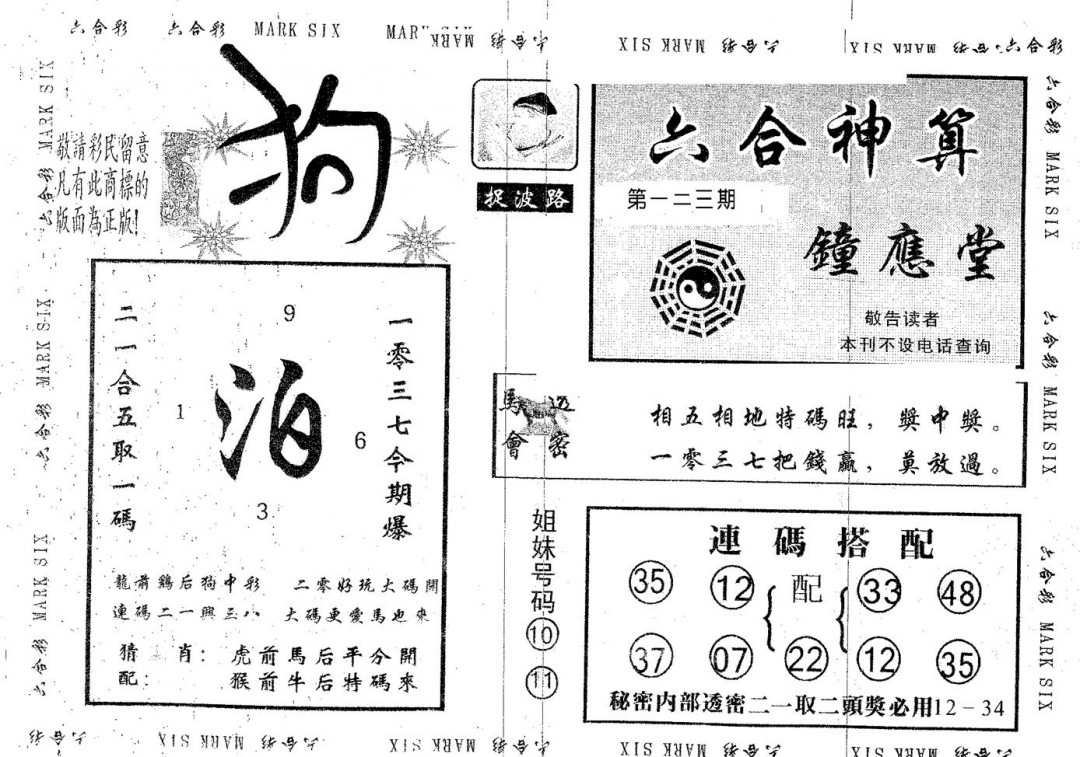 六合彩 六合彩 MARK SIX MAR MARK 六合彩 MARK SIX 六合彩 MARK SIX 六合彩 六合彩
六合彩 MARK SIX 六合彩 MARK SIX 六合彩 MARK SIX
敬請彩民留意
凡有此商標的
版面為正版!
狗
捉波路
六合神算
第一二三期
鐘應堂
敬告读者
本刊不设电话查询
二一合五取一碼
9
1
泊
6
3
一零三七今期爆
龍前鷄后狗中彩 二零好玩大碼開
連碼二一興三八 大碼更愛馬也來
猜 肖: 虎前馬后平分開
配: 猴前牛后特碼來
馬會
透密
相五相地特碼旺,獎中獎。
一零三七把錢贏,莫放過。
姐妹号码
10
11
連碼搭配
35 12 配 33 48
37 07 22 12 35
秘密内部透密二一取二頭獎必用12-34
六合彩 MARK SIX 六合彩 MARK SIX 六合彩 MARK SIX
六合彩 MARK SIX 六合彩 MARK SIX 六合彩 MARK SIX 六合彩 MARK SIX 六合彩